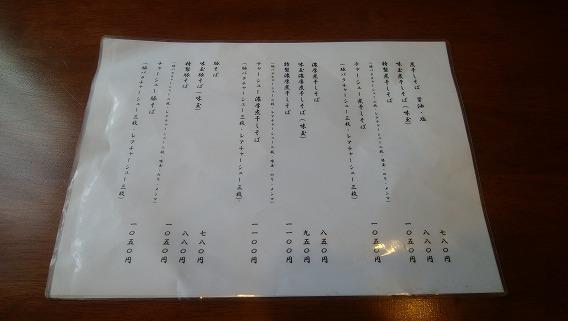 煮干しそば 醤油・塩 七八〇円
味玉煮干しそば(味玉) 八八〇円
特製煮干しそば 一〇五〇円
チャーシュー煮干しそば 一〇五〇円
(豚バラチャーシュー三枚・レアチャーシュー三枚)
濃厚煮干しそば 八五〇円
味玉濃厚煮干しそば(味玉) 九五〇円
特製濃厚煮干しそば 一一〇〇円
チャーシュー濃厚煮干しそば 一一〇〇円
(豚バラチャーシュー三枚・レアチャーシュー三枚)
豚そば 七八〇円
味玉豚そば(味玉) 八八〇円
特製豚そば 一〇五〇円
チャーシュー豚そば 一〇五〇円
(豚バラチャーシュー三枚・レアチャーシュー三枚)